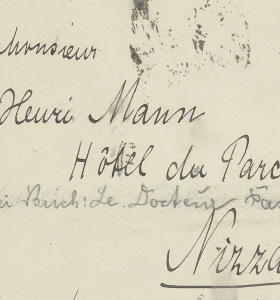 Monsieur
Henri Mann
Hôtel du Parc
Buch: Le Docteur
Nizza